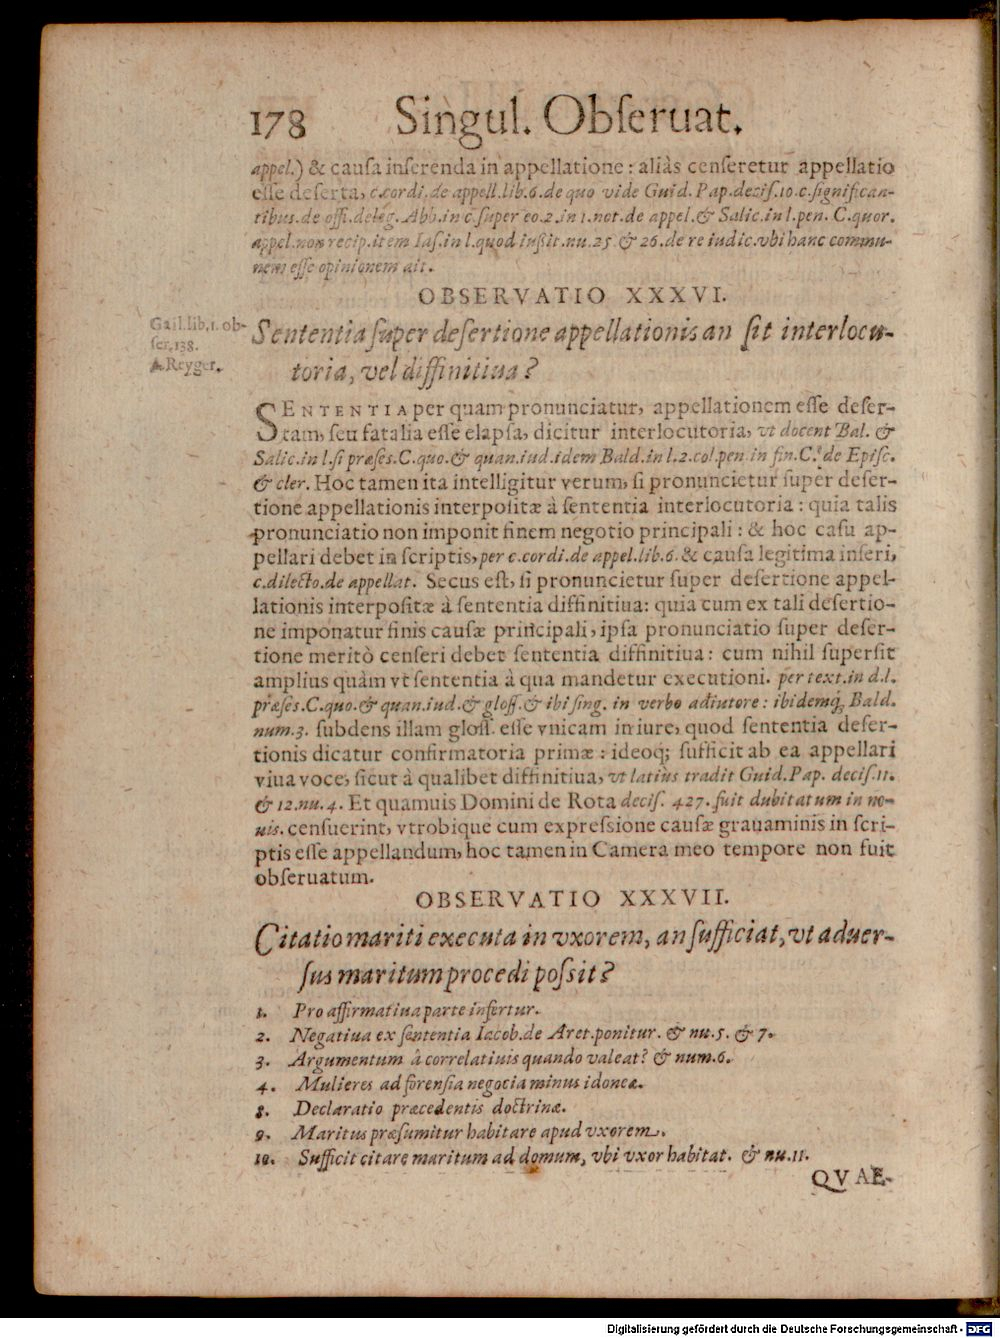 178 Singul. Obſeruat.
appel.) & cauſa inſerenda in appellatione: aliàs cenſeretur appellatio
eſſe deſerta, c.cordi.de appell.lib.6.de quo vide Guid. Pap.deciſ.10.c.ſignifican-
tibus.de offi.deleg. Abb.in c.ſuper eo.2.in 1.not.de appel.& Salic.in l.pen. C.quor.
appel.non recip.item Iaſ.in l.quod iuſſit.nu.25. & 26.de re iudic.vbi hanc commu-
nem eſſe opinionem ait.
OBSERVATIO XXXVI.
Gail.lib.1. ob-
ſer.138.
& Reyger.
Sententia ſuper deſertione appellationis an ſit interlocu-
toria, vel diffinitiua?
SENTENTIA per quam pronunciatur, appellationem eſſe deſer-
tam, ſeu fatalia eſſe elapſa, dicitur interlocutoria, vt docent Bal. &
Salic.in l.ſi præſes.C.quo.& quan.iud.idem Bald.in l.2.col.pen.in fin.C. de Epiſc.
& cler. Hoc tamen ita intelligitur verum, ſi pronuncietur ſuper deſer-
tione appellationis interpoſitæ à ſententia interlocutoria: quia talis
pronunciatio non imponit finem negotio principali: & hoc caſu ap-
pellari debet in ſcriptis, per c.cordi.de appel.lib.6. & cauſa legitima inſeri,
c.dilecto.de appellat. Secus eſt, ſi pronuncietur ſuper deſertione appel-
lationis interpoſitæ à ſententia diffinitiua: quia cum ex tali deſertio-
ne imponatur finis cauſæ principali, ipſa pronunciatio ſuper deſer-
tione meritò cenſeri debet ſententia diffinitiua: cum nihil ſuperſit
amplius quàm vt ſententia à qua mandetur executioni. per text.in d.l.
præſes.C.quo.& quan.iud.& gloſſ.& ibi ſing. in verbo adiutore: ibidemq́; Bald.
num.3. ſubdens illam gloſſ. eſſe vnicam in iure, quod ſententia deſer-
tionis dicatur confirmatoria primæ: ideoq; ſufficit ab ea appellari
viua voce, ſicut à qualibet diffinitiua, vt latiùs tradit Guid.Pap. deciſ.11.
& 12.nu.4. Et quamuis Domini de Rota deciſ. 427. fuit dubitatum in no-
uis. cenſuerint, vtrobique cum expreſsione cauſæ grauaminis in ſcri-
ptis eſſe appellandum, hoc tamen in Camera meo tempore non fuit
obſeruatum.
OBSERVATIO XXXVII.
Citatio mariti executa in vxorem, an ſufficiat, vt aduer-
ſus maritum procedi poſsit?
1. Pro affirmatiua parte infertur.
2. Negatiua ex ſententia Iacob.de Aret.ponitur. & nu.5. & 7.
3. Argumentum à correlatiuis quando valeat? & num.6.
4. Mulieres ad forenſia negocia minus idoneæ.
8. Declaratio præcedentis doctrinæ.
9. Maritus præſumitur habitare apud vxorem.
10. Sufficit citare maritum ad domum, vbi vxor habitat. & nu.11.
QVAE-
Digitalisierung gefördert durch die Deutsche Forschungsgemeinschaft - DFG